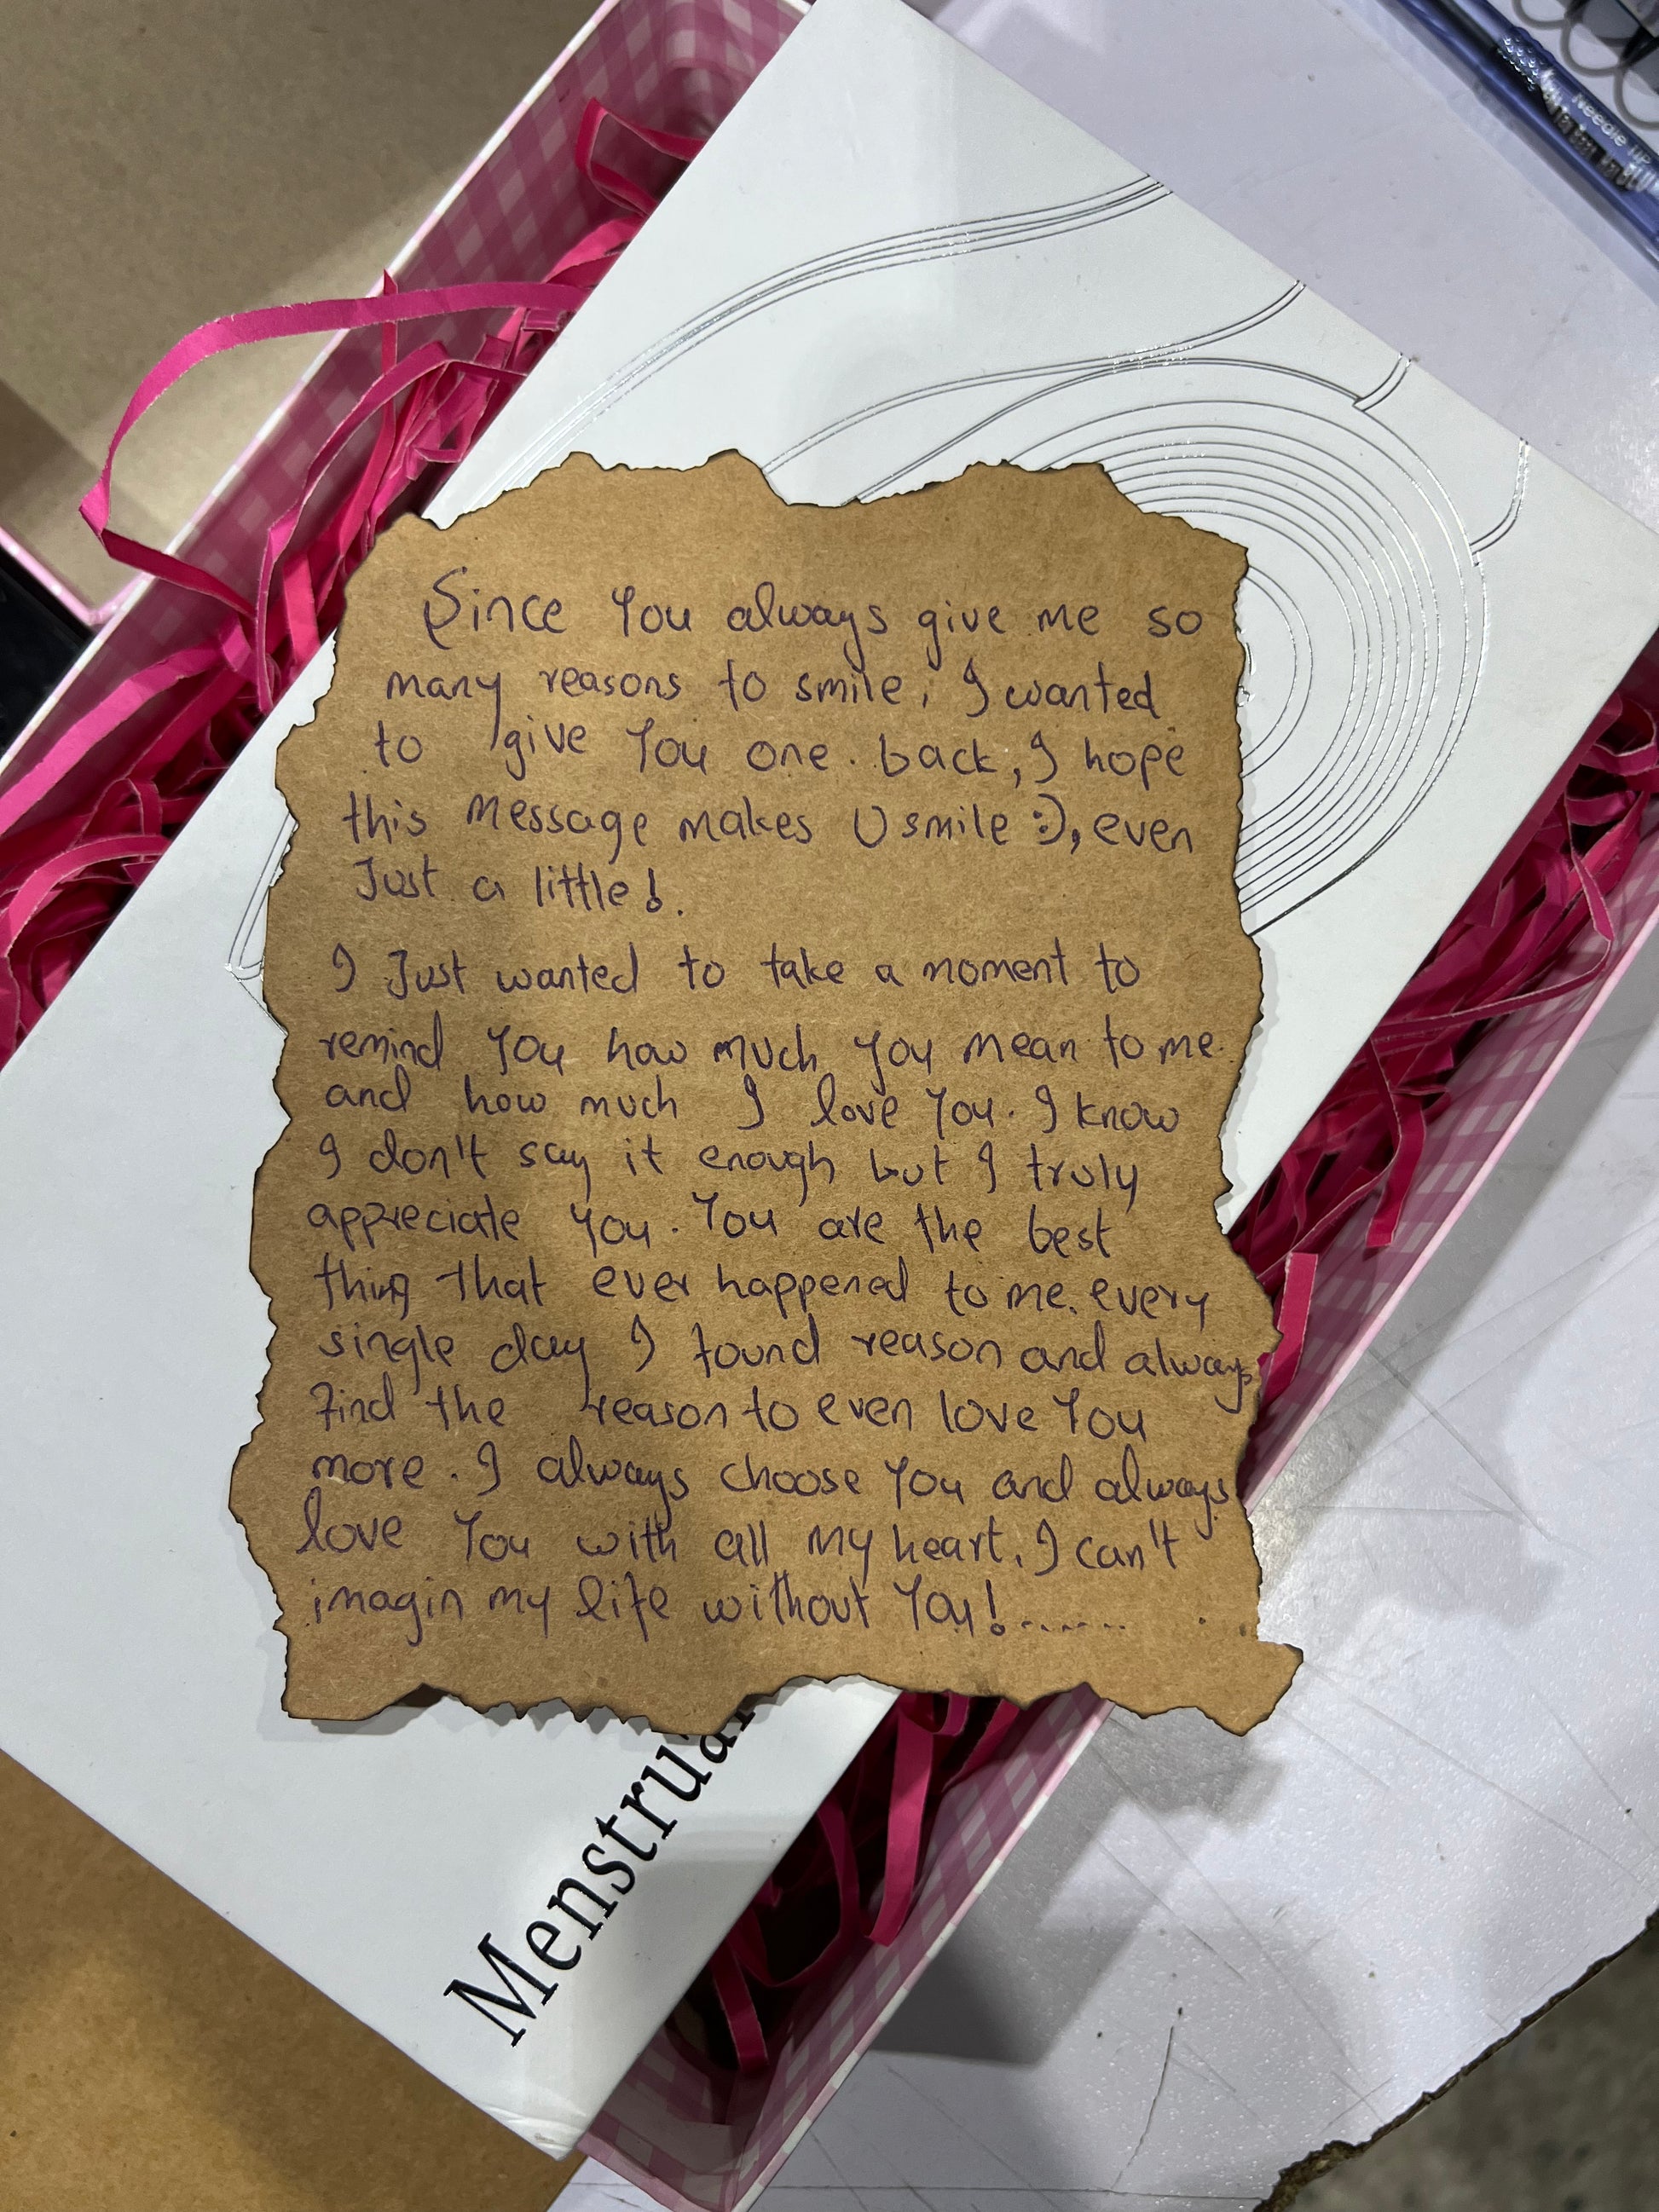 Since You always give me so
many reasons to smile, I wanted
to give You one. back, I hope
this message makes U smile :), even
Just a little!.
I Just wanted to take a moment to
remind You how much you mean to me.
and how much I love You. I know
I don't say it enough but I truly
appreciate You. You are the best
thing that ever happened to me. every
single day I found reason and always
find the reason to even love You
more. I always choose You and always
love You with all my heart. I can't
imagin my life without You!.......
Menstrual
Needle TIP